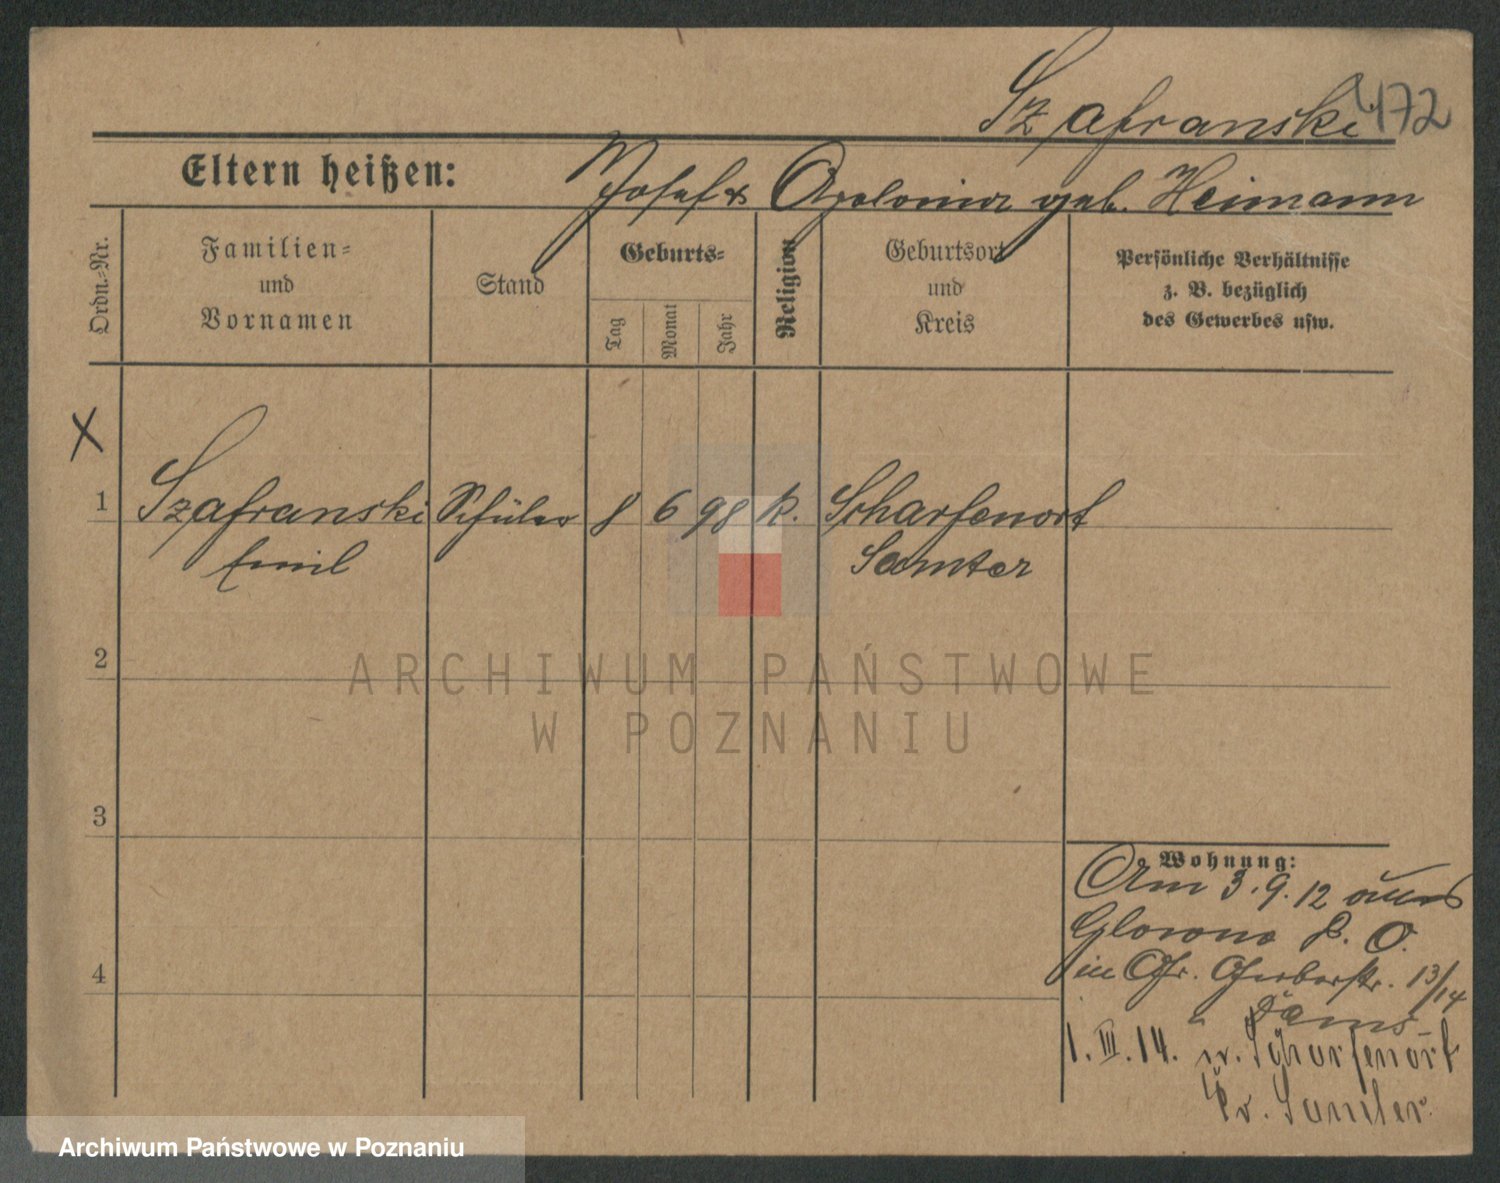 Szafranski 472
Eltern heißen: Josef & Apolonia geb. Heimann
Ordn.-Nr.
Familien-
und
Vornamen
Stand
Geburts-
Tag
Monat
Jahr
Religion
Geburtsort
und
Kreis
Persönliche Verhältnisse
z. B. bezüglich
des Gewerbes usw.
X
1 Szafranski Schüler 8 6 98 k. Scharfenort
Emil Samter
2
3
4
Wohnung:
Am 3.9.12 aus
Glowno P. O.
in Gr. Gerberstr. 13/14
1. III. 14. n. Scharfenort
Kr. Samter.
ARCHIWUM PAŃSTWOWE
W POZNANIU
Archiwum Państwowe w Poznaniu